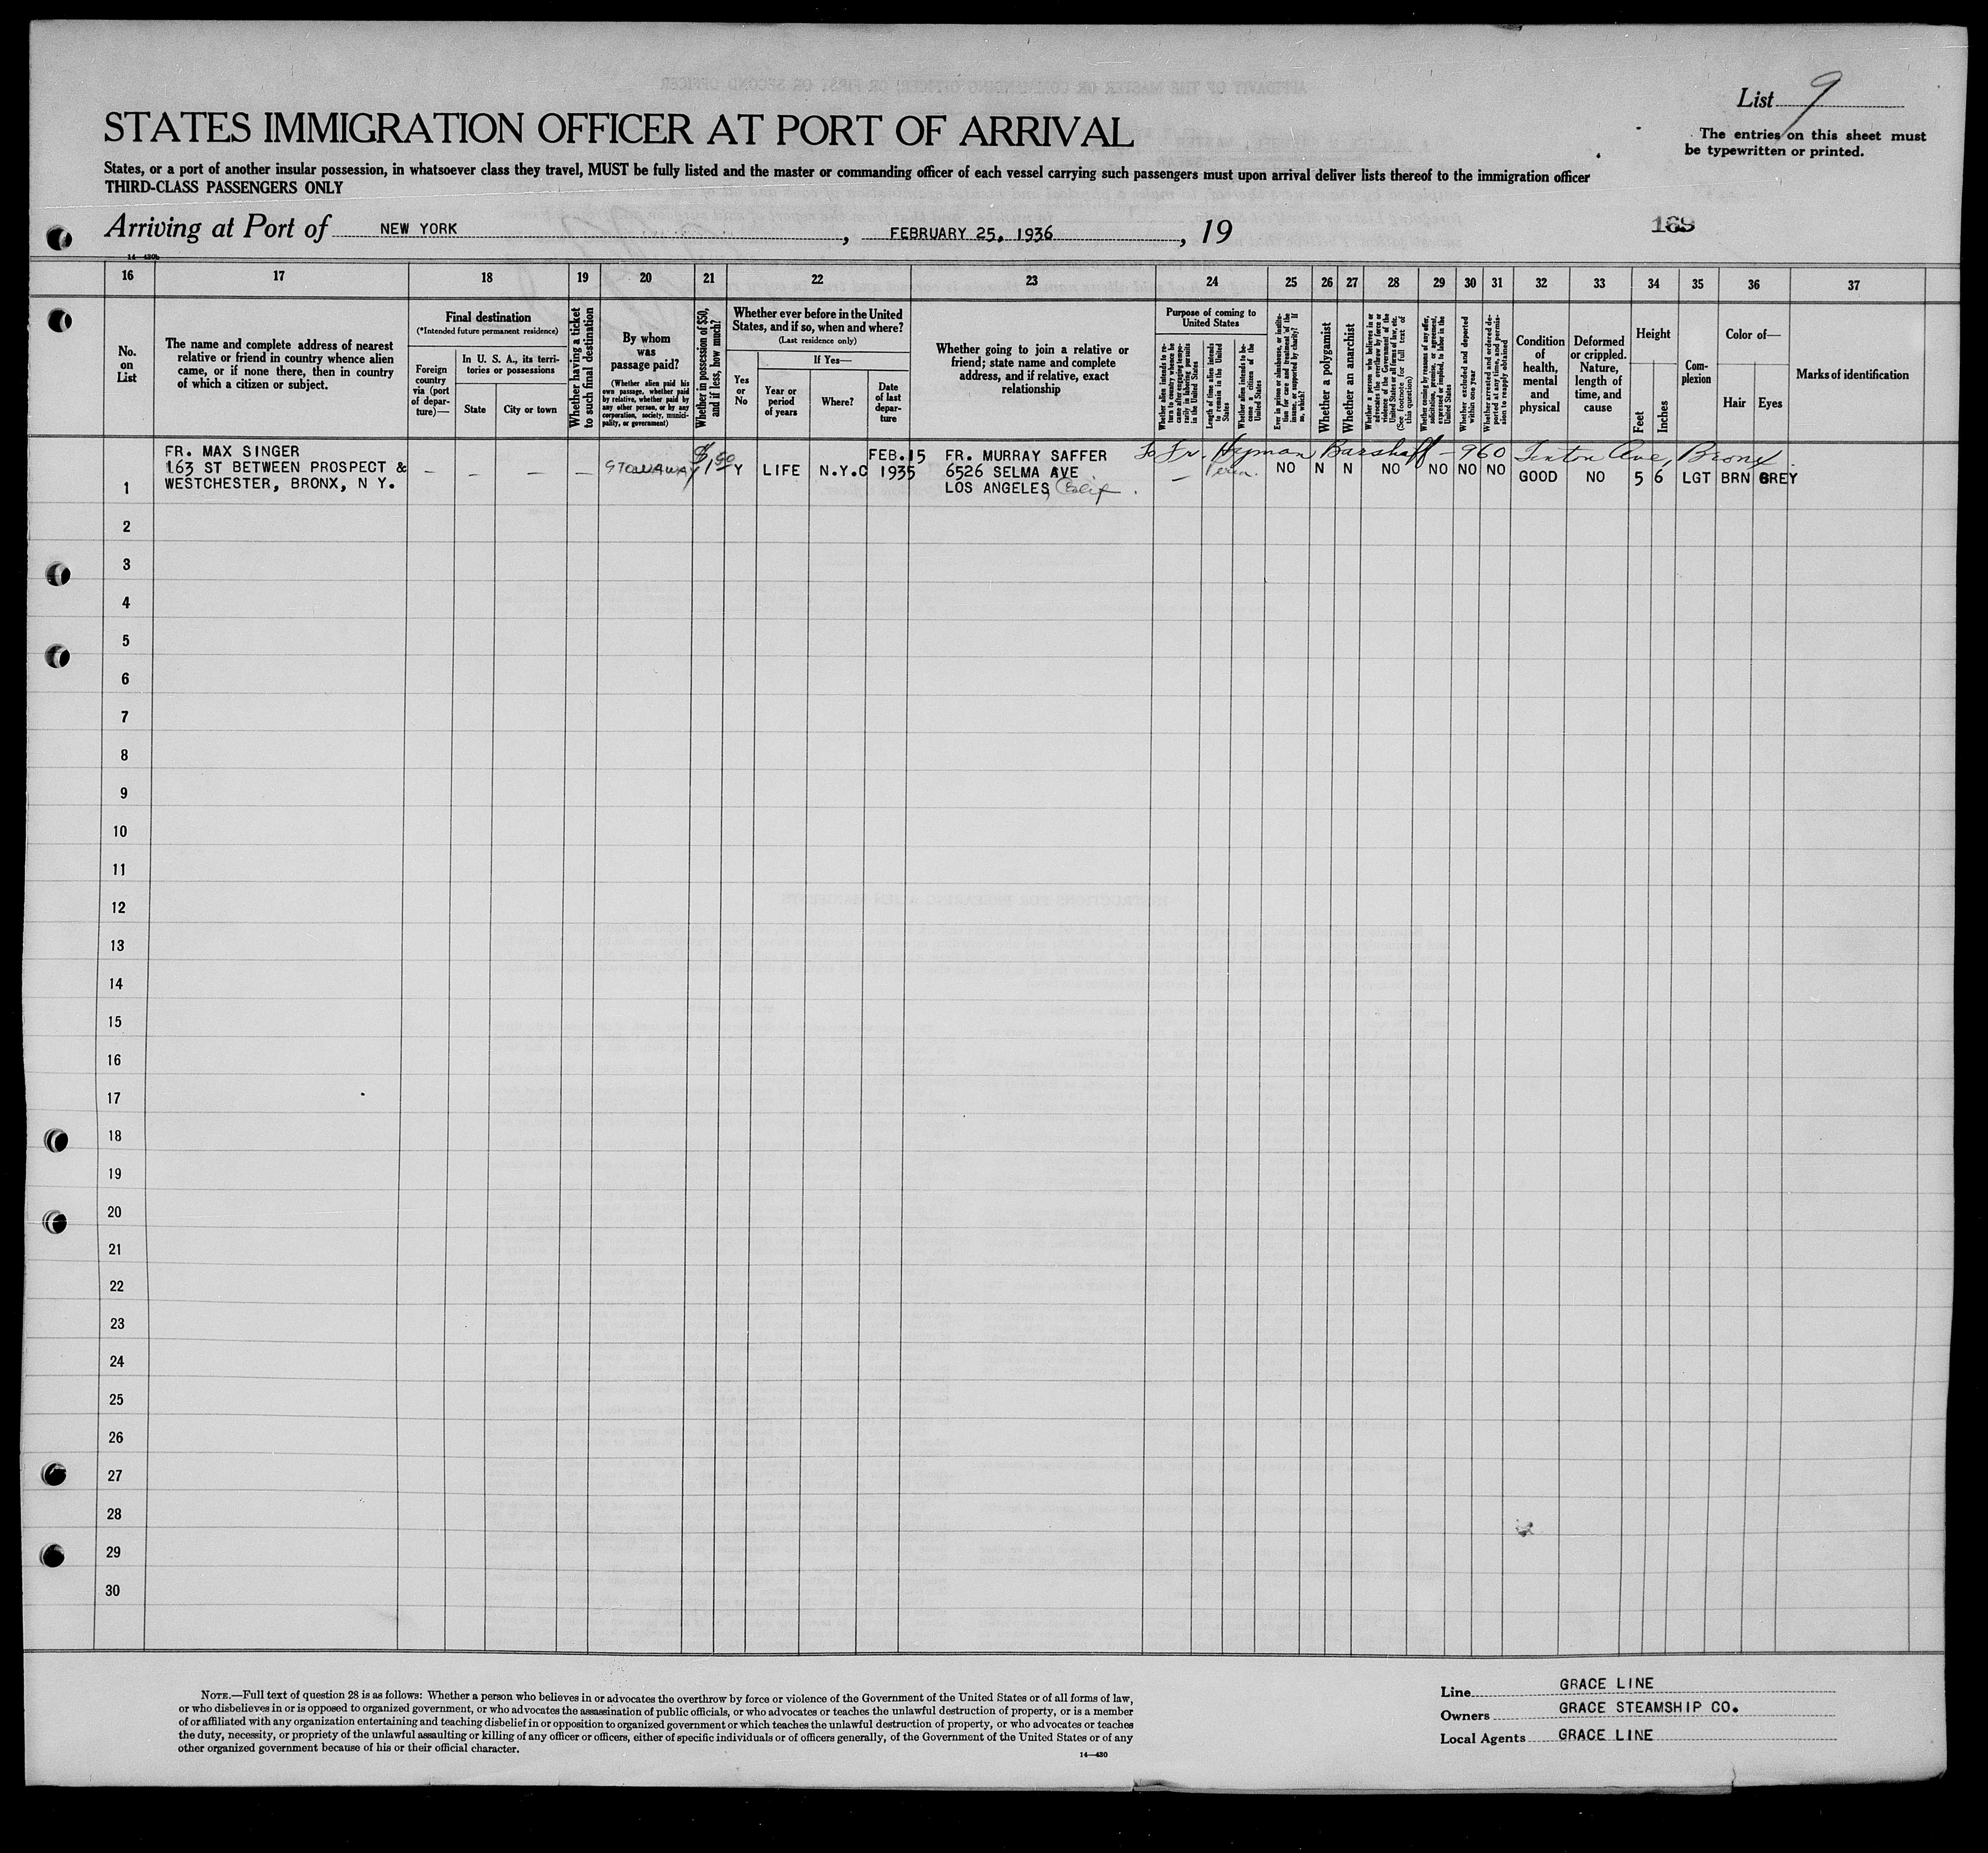 List 9
STATES IMMIGRATION OFFICER AT PORT OF ARRIVAL
The entries on this sheet must
be typewritten or printed.
States, or a port of another insular possession, in whatsoever class they travel, MUST be fully listed and the master or commanding officer of each vessel carrying such passengers must upon arrival deliver lists thereof to the immigration officer
THIRD-CLASS PASSENGERS ONLY
Arriving at Port of NEW YORK, FEBRUARY 25, 1936, 19
169
14—430b
16 17 18 19 20 21 22 23 24 25 26 27 28 29 30 31 32 33 34 35 36 37
No.
on
List
The name and complete address of nearest
relative or friend in country whence alien
came, or if none there, then in country
of which a citizen or subject.
Final destination
(*Intended future permanent residence)
Foreign
country
via (port
of depar-
ture)—
In U. S. A., its terri-
tories or possessions
State
City or town
Whether having a ticket
to such final destination
By whom
was
passage paid?
(Whether alien paid his
own passage, whether paid
by relative, whether paid by
any other person, or by any
corporation, society, munici-
pality, or government)
Whether in possession of $50,
and if less, how much?
Whether ever before in the United
States, and if so, when and where?
(Last residence only)
Yes
or
No
If Yes—
Year or
period
of years
Where?
Date
of last
depar-
ture
Whether going to join a relative or
friend; state name and complete
address, and if relative, exact
relationship
Purpose of coming to
United States
Whether alien intends to re-
turn to country whence he
came after engaging tempo-
rarily in laboring pursuits
in the United States
Length of time alien intends
to remain in the United
States
Whether alien intends to be-
come a citizen of the
United States
Ever in prison or almshouse, or institu-
tion for care and treatment of the
insane, or supported by charity? If
so, which?
Whether a polygamist
Whether an anarchist
Whether a person who believes in or
advocates the overthrow by force or
violence of the Government of the
United States or all forms of law, etc.
(See footnote for full text of
this question)
Whether coming by reasons of any offer,
solicitation, promise, or agreement,
expressed or implied, to labor in the
United States
Whether excluded and deported
within one year
Whether arrested and ordered de-
ported at any time, and permis-
sion to reapply obtained
Condition
of
health,
mental
and
physical
Deformed
or crippled.
Nature,
length of
time, and
cause
Height
Feet
Inches
Com-
plexion
Color of—
Hair
Eyes
Marks of identification
To Fr. Hyman Barshaff - 960 Tinton Ave, Bronx
FR. MAX SINGER
163 ST BETWEEN PROSPECT &
WESTCHESTER, BRONX, N Y.
1 — — — — STOWAWAY $1.00 Y LIFE N.Y.C
FEB.15
1935
FR. MURRAY SAFFER
6526 SELMA AVE
LOS ANGELES, Calif.
— Perm. NO N N NO NO NO NO GOOD NO 5 6 LGT BRN GREY
2
3
4
5
6
7
8
9
10
11
12
13
14
15
16
17
18
19
20
21
22
23
24
25
26
27
28
29
30
NOTE.—Full text of question 28 is as follows: Whether a person who believes in or advocates the overthrow by force or violence of the Government of the United States or of all forms of law,
or who disbelieves in or is opposed to organized government, or who advocates the assassination of public officials, or who advocates or teaches the unlawful destruction of property, or is a member
of or affiliated with any organization entertaining and teaching disbelief in or opposition to organized government or which teaches the unlawful destruction of property, or who advocates or teaches
the duty, necessity, or propriety of the unlawful assaulting or killing of any officer or officers, either of specific individuals or of officers generally, of the Government of the United States or of any
other organized government because of his or their official character.
14—430
Line GRACE LINE
Owners GRACE STEAMSHIP CO.
Local Agents GRACE LINE